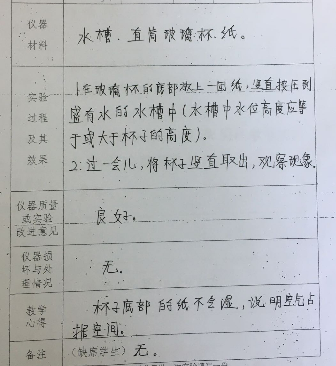 仪器
材料
水槽、直筒玻璃杯、纸。
实验
过程
及其
效果
1.在玻璃杯的底部放上一团纸，竖直按在到
盛有水的水槽中(水槽中水位高度应等
于或大于杯子的高度)。
2.过一会儿，将杯子竖直取出，观察现象
仪器质量
或实验
改进意见
良好。
仪器损
坏与处
理情况
无。
教学
心得
杯子底部的纸不会湿，说明空气占
据空间。
备注
(缺席学生)无。